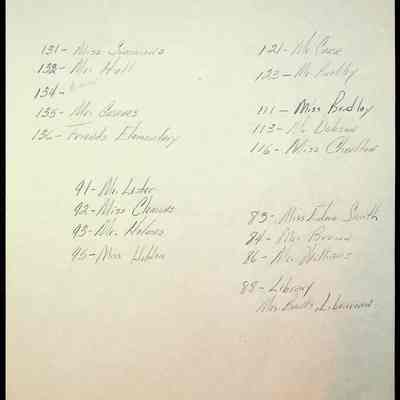 131- Miss
132- Mr. Hall
134-
135- Mr. Barnes
136- Friends Elementary
91- Mr. Lester
92- Miss
93- Mr. Holmes
95- Miss Holden
121- Mr.
123- Mr.
111- Miss Bradley
113- Mr. Dobson
116- Miss Charlton
83- Miss Edna Smith
84- Mrs. Brown
86- Mr. Williams
88- Library
Mrs. Librarian